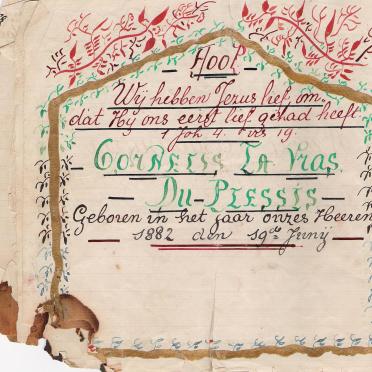 — Hoof —
Wij hebben Jezus lief, om
dat Hij ons eerst lief gehad heeft.
1 Joh 4. vrs 19.
— Cornelis La Gras
— Du Plessis —
Geboren in het jaar onzes Heeren
— 1882 den 19de Junij —